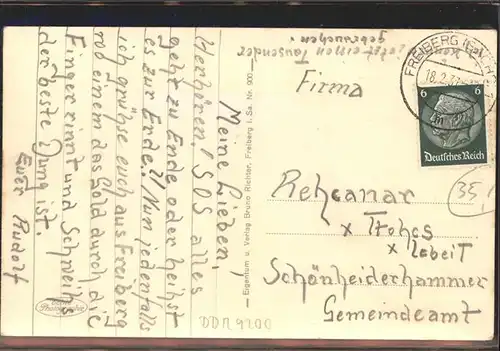 Meine Lieben!
Herhören! SOS alles
geht zu Ende oder heißt
es zur Erde?! Nun jedenfalls
ich grüße euch aus Freiberg
einem das Gold durch die
Finger rinnt und Schweihs
der beste Dung ist.
Euer Rudolf
jetzt einen Tausender
gebrauchen!
Eigentum u. Verlag Bruno Richter, Freiberg i. Sa. Nr. 900
FREIBERG
18.2.
6 6
Deutsches Reich
Firma
Rehcanar
x Trohes
x Lebeit
Schönheiderhammer
Gemeindeamt
35
DDN 9200